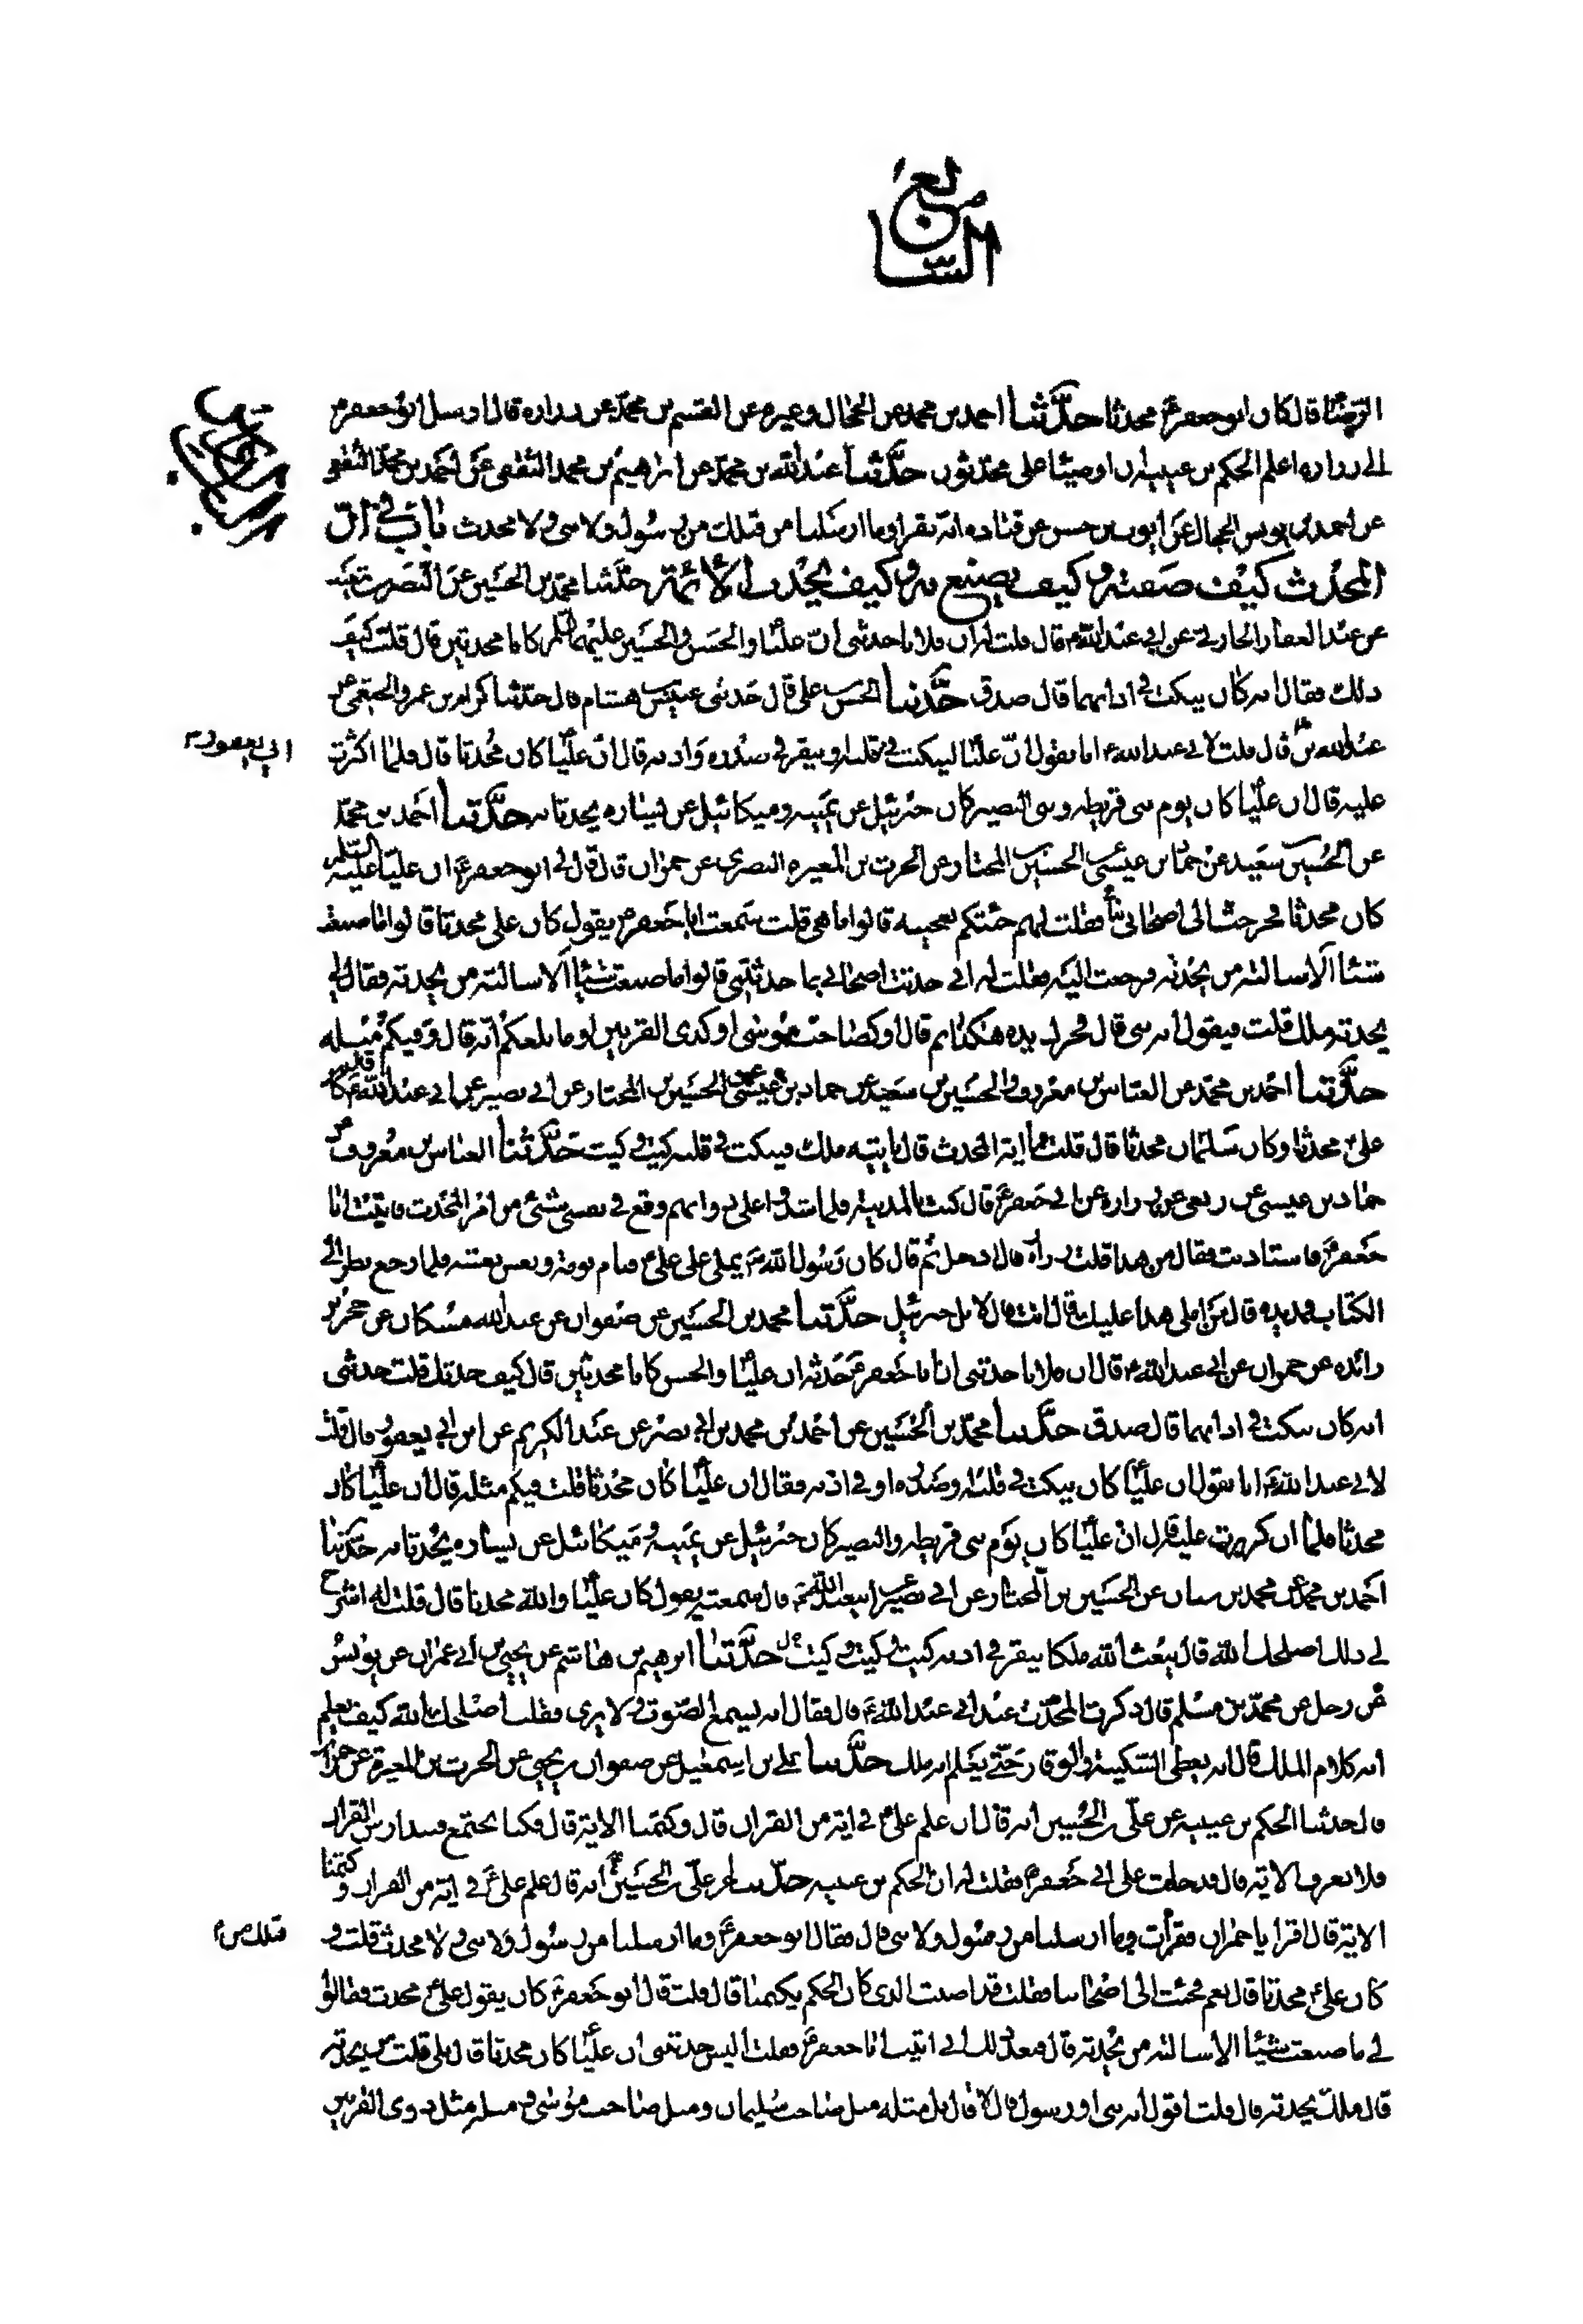 السابع
الرضا قال كان ابو جعفر ع محدثا حدثنا احمد بن محمد عن الحجال وغيره عن القسم بن محمد عن زراره قال ارسل ابو جعفر ع
الى زراره اعلم الحكم بن عيينه ان اوصيا على محدثون حدثنا عبد الله بن محمد عن ابراهيم بن محمد الثقفى عن احمد بن محمد الثقفى
عن احمد بن يونس الحجال عن ايوب بن حسن عن قتاده انه يقرا وما ارسلنا من قبلك من رسول ولا نبى ولا محدث باب فى ان
المحدث كيف صفته وكيف يصنع به وكيف يحدث الائمة حدثنا محمد بن الحسين عن النضر بن
عن عبد الغفار الحارثى عن ابى عبد الله ع قال قلت له ان فلانا حدثنى ان عليا والحسن والحسين عليهم السلم كانا محدثين قال قلت كيف
ذلك فقال انه كان ينكت فى اذانهما قال صدق حدثنا الحسن بن على قال حدثنى عبيس بن هشام قال حدثنا كرام بن عمرو الخثعمى عن
عبد الله بن قال قلت لابى عبد الله ع انا نقول ان عليا لينكت فى قلبه او ينقر فى صدره واذنه قال ان عليا كان محدثا قال فلما اكثرت
ابى يعفور
عليه قال ان عليا كان يوم بنى قريظه وبنى النضير كان جبرئيل عن يمينه وميكائيل عن يساره يحدثانه حدثنا احمد بن محمد
عن الحسين بن سعيد عن حماد بن عيسى عن الحسين بن المختار عن الحرث بن المغيره النصرى عن حمران قال قال لى ابو جعفر ع ان عليا عليه السلم
كان محدثا فخرجت الى اصحابى فقلت لهم جئتكم بعجيبه قالوا ما هى قلت سمعت ابا جعفر ع يقول كان على محدثا قالوا ما صنعت
شيئا الا سالته من يحدثه فرجعت اليه فقلت له انى حدثت اصحابى بما حدثتنى قالوا ما صنعت شيئا الا سالته من يحدثه فقال لى
يحدثه ملك قلت فيقول انه نبى قال فحرك يده هكذا ثم قال او كصاحب موسى او كذى القرنين او ما بلغكم انه قال وفيكم مثله
حدثنا احمد بن محمد عن العباس بن معروف والحسين بن سعيد عن حماد بن عيسى عن الحسين بن المختار عن ابى بصير عن ابى عبد الله ع قال كان
على ع محدثا وكان سلمان محدثا قال قلت فما اية المحدث قال ياتيه ملك فينكت فى قلبه كيت وكيت حدثنا العباس بن معروف عن
حماد بن عيسى عن ربعى عن زراره عن ابى جعفر ع قال كنت بالمدينه فلما شدوا على دوابهم وقع فى نفسى شئ من امر المحدث فاتيت ابا
جعفر ع فاستاذنت فقال من هذا قلت زراره قال ادخل ثم قال كان رسول الله ص يملى على على ع فنام نومه ونعس نعسه فلما رجع نظر الى
الكتاب فمد يده قال من املى هذا عليك قال انت قال لا بل جبرئيل حدثنا محمد بن الحسين عن صفوان عن عبد الله مسكان عن حجر بن
زائده عن حمران عن ابى عبد الله ع قال ان فلانا حدثنى ان ابا جعفر ع حدثه ان عليا والحسن كانا محدثين قال كيف حدثك قلت حدثنى
انه كان ينكت فى اذانهما قال صدق حدثنا محمد بن الحسين عن احمد بن محمد بن ابى نصر عن عبد الكريم عن ابن ابى يعفور قال قلت
لابى عبد الله ع انا نقول ان عليا كان ينكت فى قلبه وصدره او فى اذنه فقال ان عليا كان محدثا قلت فيكم مثله قال ان عليا كان
محدثا فلما ان كررت عليه قال ان عليا كان يوم بنى قريظه والنضير كان جبرئيل عن يمينه وميكائيل عن يساره يحدثانه حدثنا
احمد بن محمد عن محمد بن سنان عن الحسين بن المختار عن ابى بصير عن ابى عبد الله ع قال سمعته يقول كان عليا والله محدثا قال قلت له اشرح
لى ذلك اصلحك الله قال يبعث الله ملكا ينقر فى اذنه كيت وكيت وكيت حدثنا ابرهيم بن هاشم عن يحيى بن ابى عمران عن يونس
عن رجل عن محمد بن مسلم قال ذكرت المحدث عند ابى عبد الله ع قال فقال انه يسمع الصوت ولا يرى فقلت اصلحك الله كيف يعلم
انه كلام الملك قال انه يعطى السكينة والوقار حتى يعلم انه ملك حدثنا على بن اسمعيل عن صفوان بن يحيى عن الحرث بن المغيره عن حمران
قال حدثنا الحكم بن عيينه عن على بن الحسين انه قال ان علم على ع فى اية من القران قال وكتمنا الاية قال فكنا نجتمع فنتدارس القران
فلا نعرف الاية قال فدخلت على ابى جعفر ع فقلت له ان الحكم بن عيينه حدثنا عن على بن الحسين ع انه قال علم على ع فى اية من القران وكتمنا
الاية قال اقرا يا حمران فقرات وما ارسلنا من رسول ولا نبى قال فقال ابو جعفر ع وما ارسلنا من رسول ولا نبى ولا محدث قلت و
قبلك من
كان على ع محدثا قال نعم فجئت الى اصحابنا فقلت قد اصبت الذى كان الحكم يكتمنا قال قلت قال ابو جعفر ع كان يقول على ع محدث فقالوا
لى ما صنعت شيئا الا سالته من يحدثه قال فبعد ذلك انى اتيت ابا جعفر ع فقلت اليس حدثتنى ان عليا كان محدثا قال بلى قلت من يحدثه
قال ملك يحدثه قال قلت اقول انه نبى او رسول قال لا قال بل مثله مثل صاحب سليمان ومثل صاحب موسى ومثله مثل ذوى القرنين